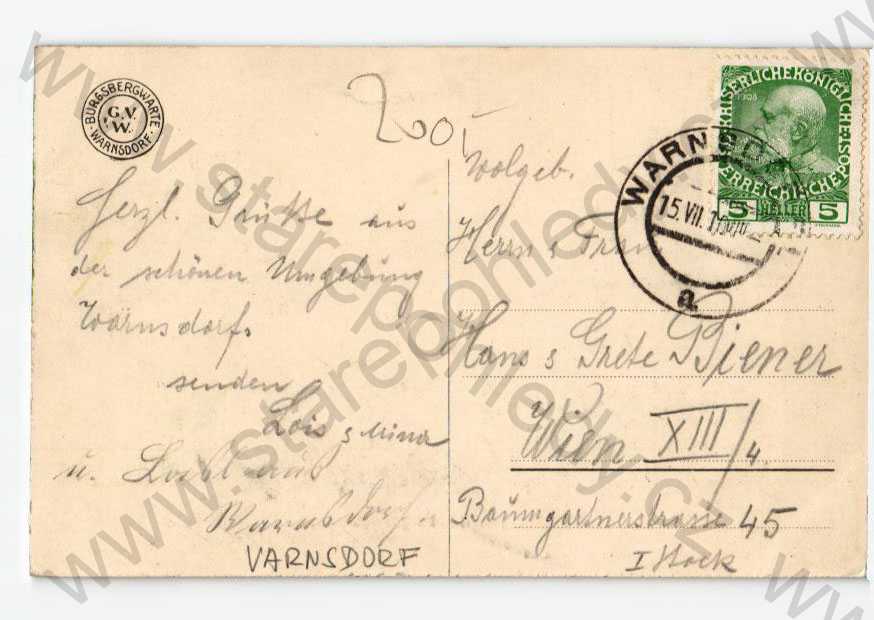 BURGSBERGWARTE
G.V.
W.
WARNSDORF.
200,-
Herzl. Grüße aus
der schönen Umgebung
Warnsdorfs
senden
Lois & Mina
u.
aus
Warnsdorf
VARNSDORF
Wolgeb.
Herrn & Frau
Hans & Grete Biener
Wien XIII/4.
Baumgartnerstrasse 45
I Stock
KAISERLICHEKÖNIGLICHE
POST
1908
5 HELLER 5
WARNSDORF
15.VII.
a
www.starepohledy.cz
www.starepohledy.cz